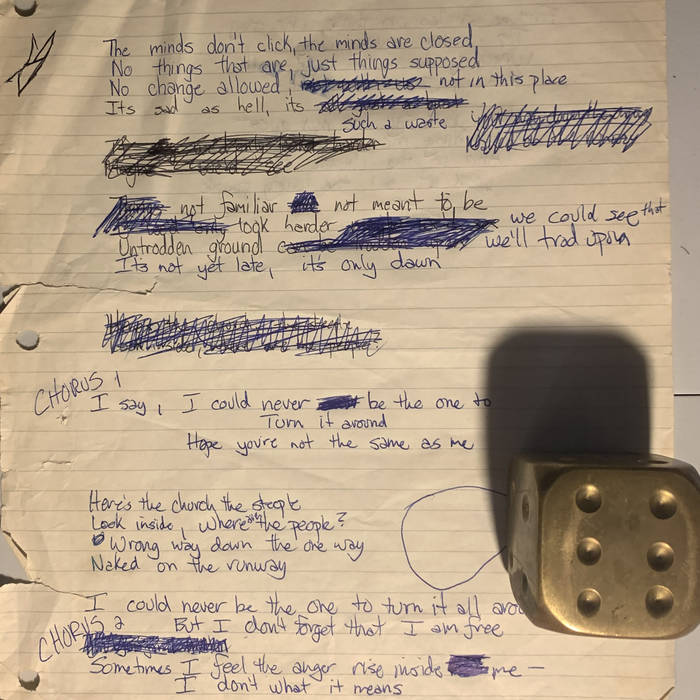 The minds don't click, the minds are closed
No things that are, just things supposed
No change allowed, not in this place
Its sad as hell, its
Such a waste
not familiar not meant to, be
look harder we could see that
Untrodden ground we'll trod upon
It's not yet late, it's only dawn
CHORUS 1
I say, I could never be the one to
Turn it around
Hope you're not the same as me
Here's the church the steeple
Look inside, where are the people?
Wrong way down the one way
Naked on the runway
I could never be the one to turn it all
CHORUS 2 But I don't forget that I am free
Sometimes I feel the anger rise inside me —
I don't what it means